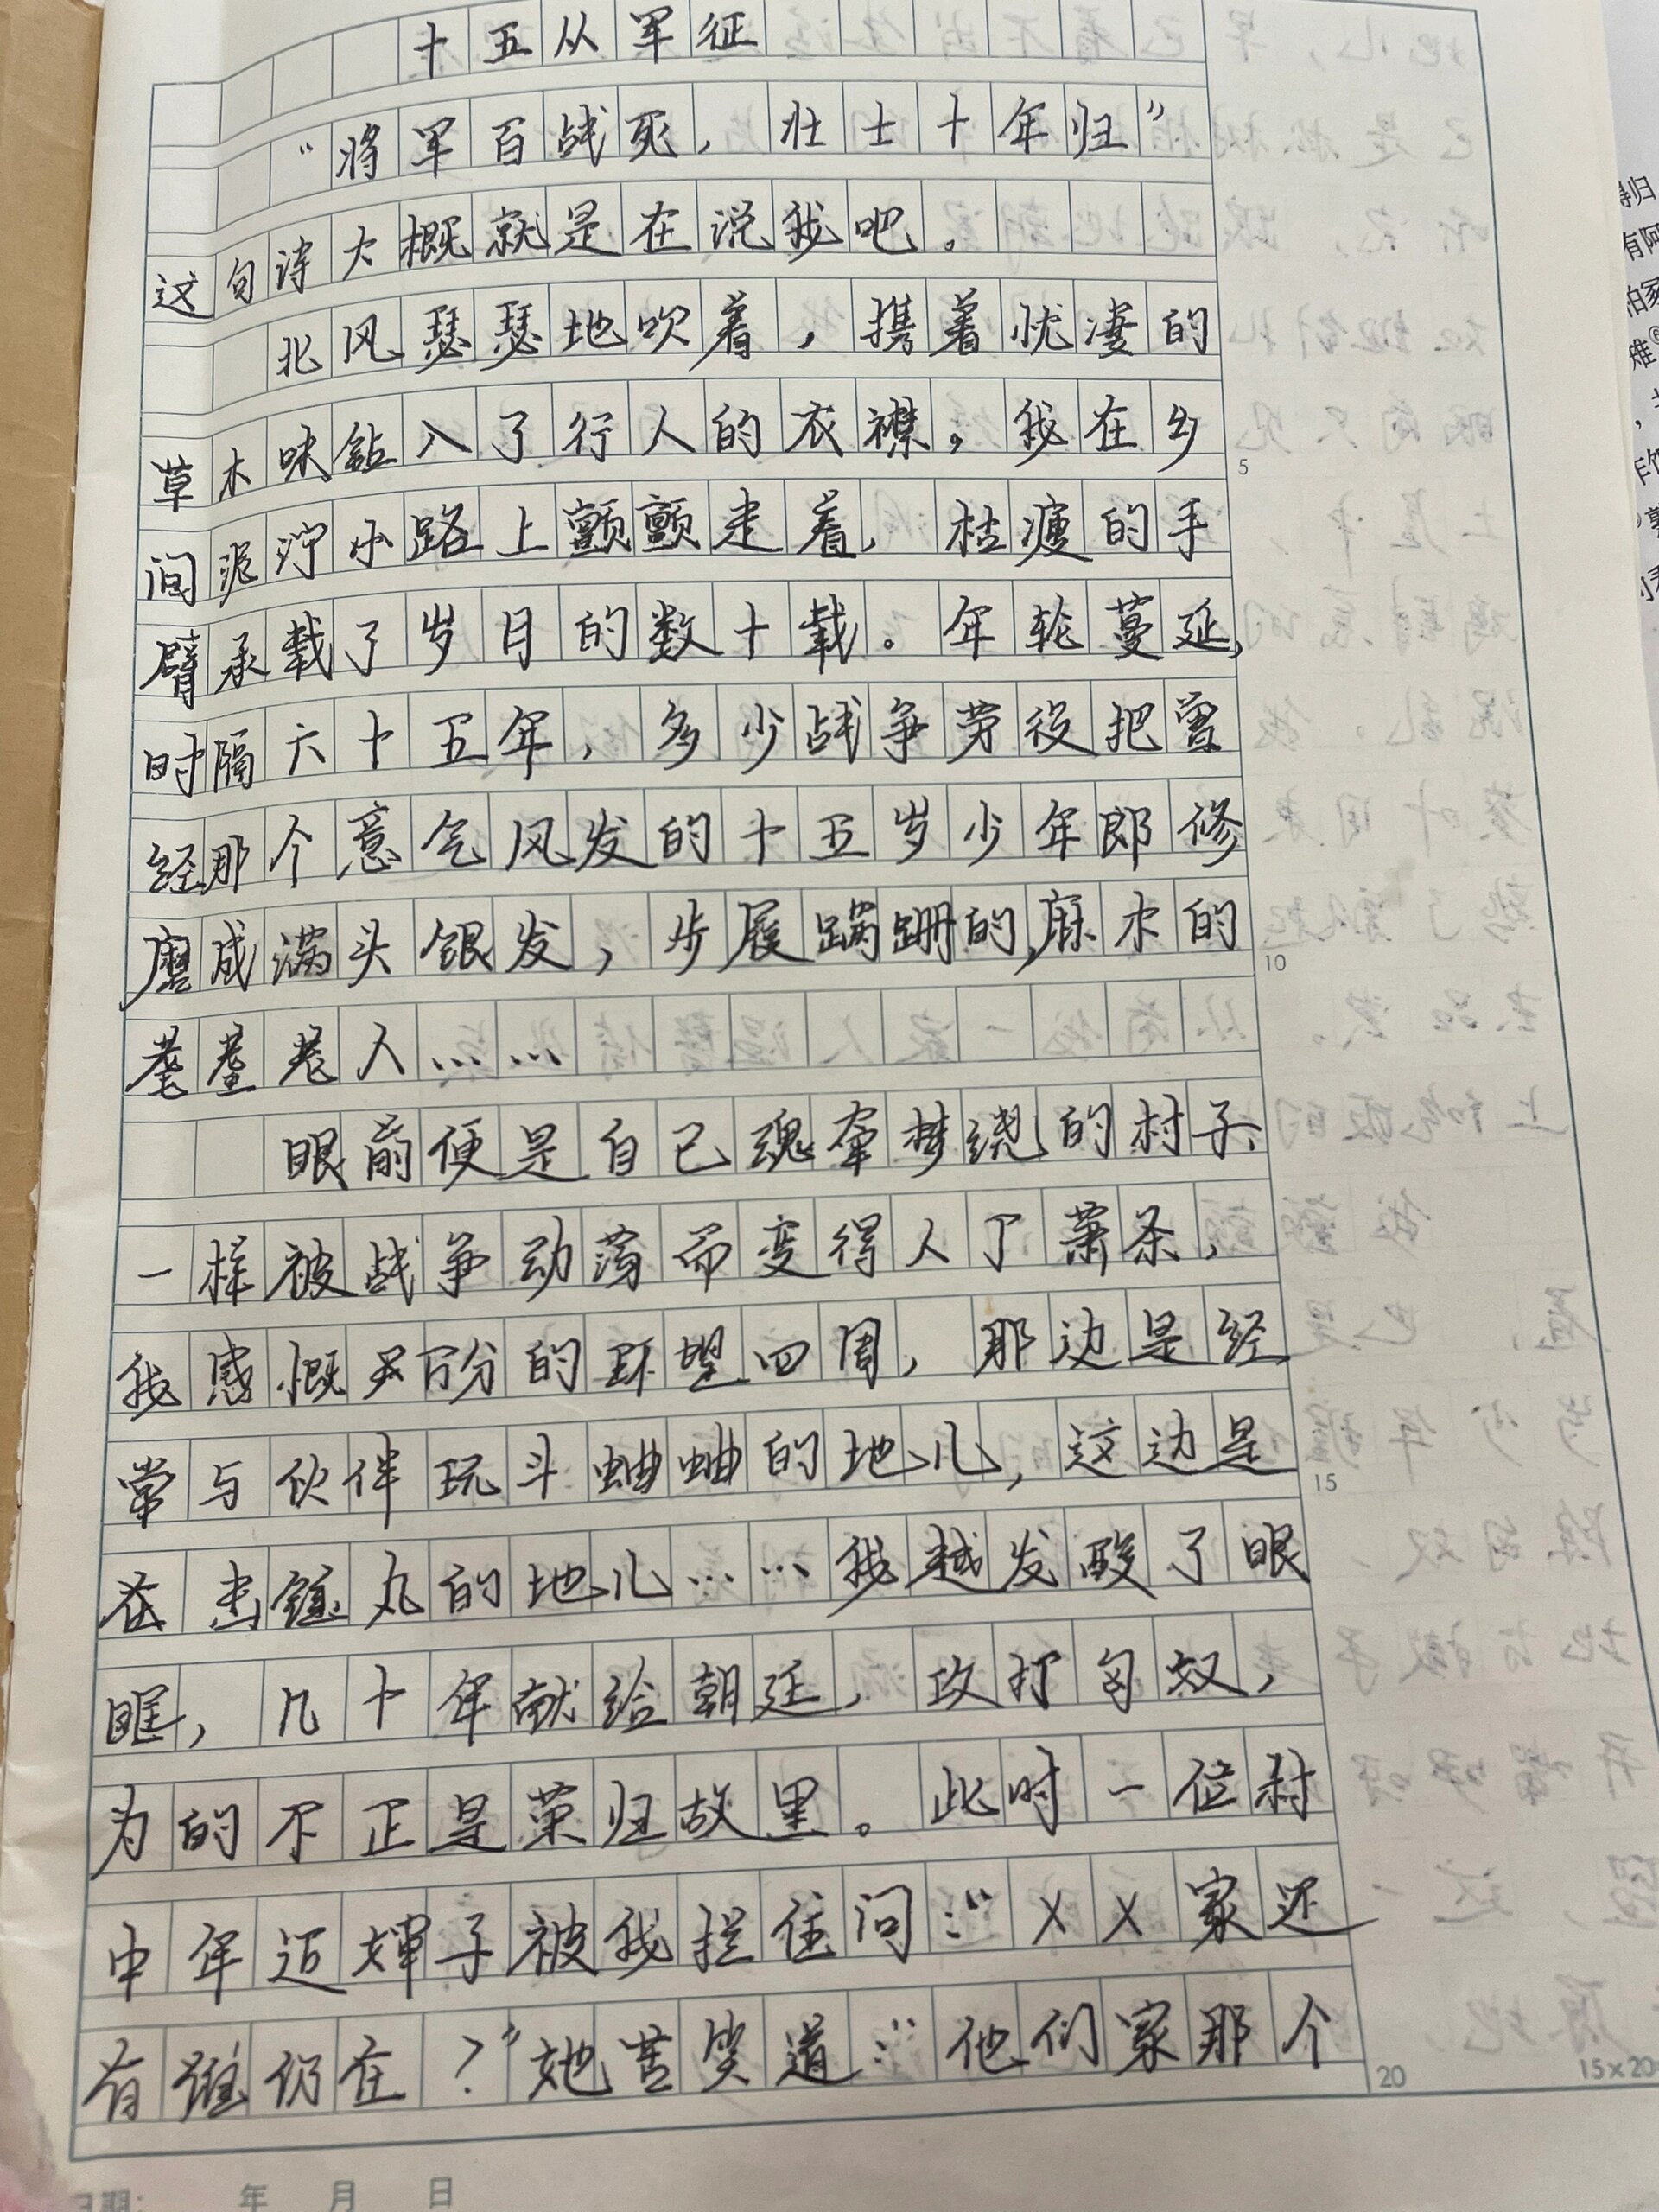 十五从军征
“将军百战死，壮士十年归”
这句诗大概就是在说我吧。
北风瑟瑟地吹着，携着忧凄的
草木味钻入了行人的衣襟，我在乡
间泥泞小路上颤颤走着，枯瘦的手
臂承载了岁月的数十载。年轮蔓延，
时隔六十五年，多少战争劳役把曾
经那个意气风发的十五岁少年郎修
磨成满头银发，步履蹒跚的，麻木的
耄耋老人……
眼前便是自己魂牵梦绕的村子、
一样被战争动荡而变得人丁萧条，
我感慨万分的环望四周，那边是经
常与伙伴玩斗蛐蛐的地儿，这边是
在击锤丸的地儿……我越发酸了眼
眶，几十年献给朝廷，攻打匈奴，
为的不正是荣归故里。此时一位村
中年迈婶子被我拦住问：“XX家还
有谁仍在？”她苦笑道：“他们家那个
5
10
15
20
15×20
日期： 年 月 日